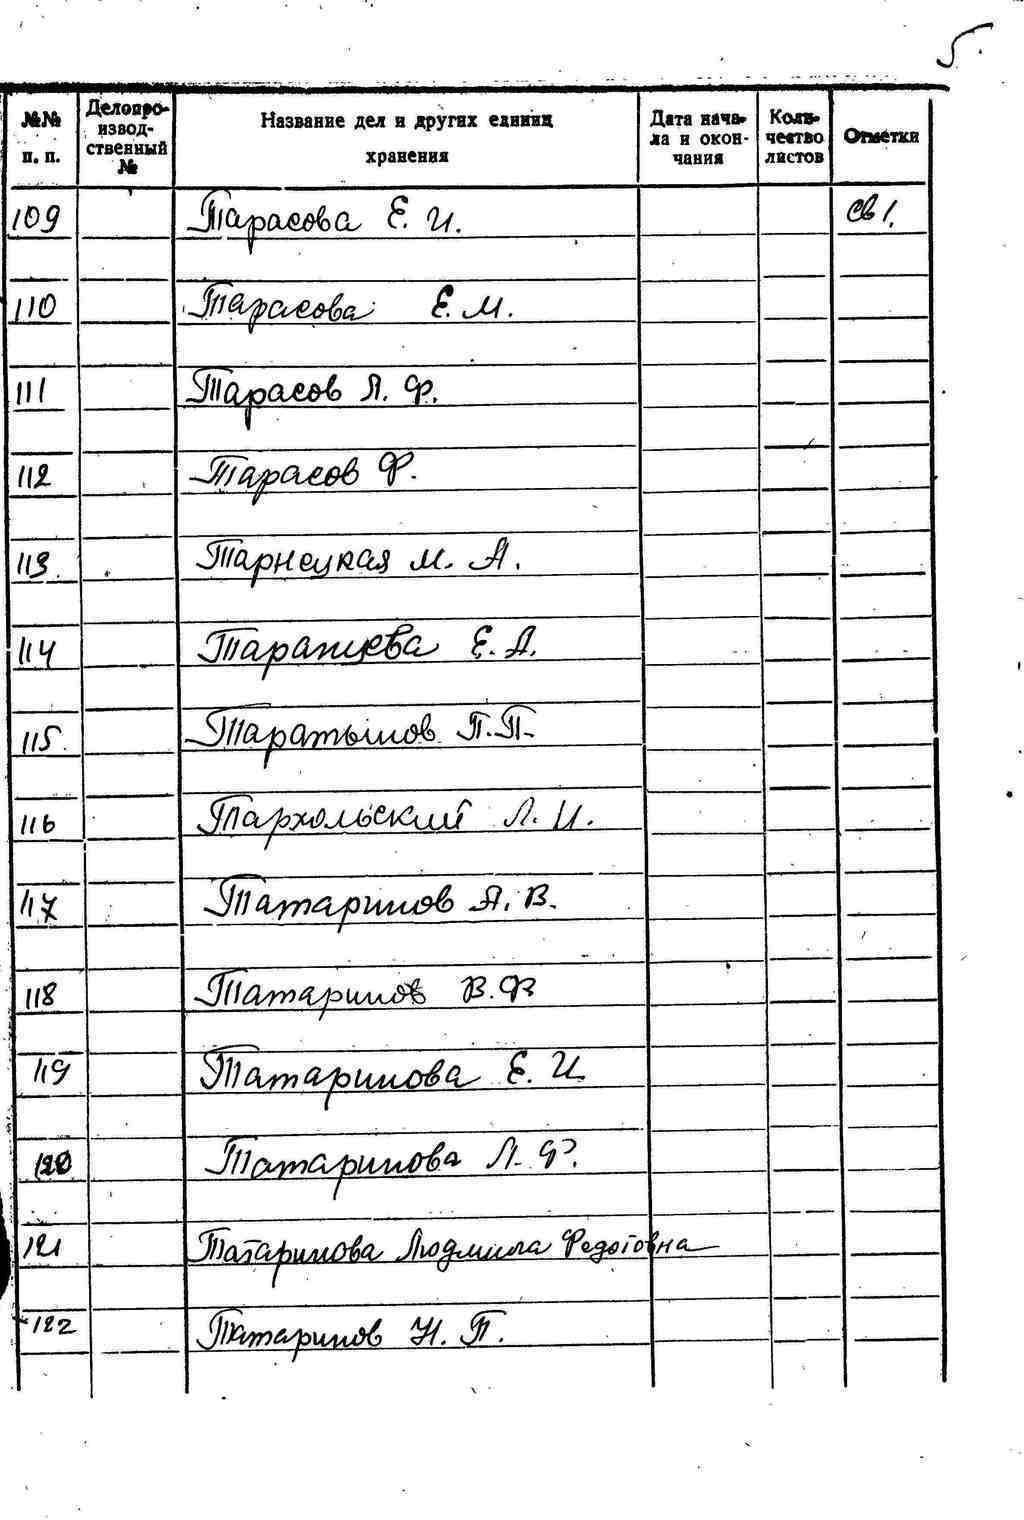 5.
№№ п. п. Делопроизводственный № Название дел и других единиц хранения Дата начала и окончания Количество листов Отметки
109 Тарасова Е. И. св 1.
110 Тарасова Е. М.
111 Тарасов Л. Ф.
112 Тарасов Ф.
113. Тарнецкая М. А.
114 Е. А.
115. П. П.
116 Тархольский Л. И.
117 Татаринов А. В.
118 Татаринов В. Ф
119 Татаринова Е. И
120 Татаринова Л. Ф.
121 Татаринова Людмила Федотовна
122 Татаринов Н. П.